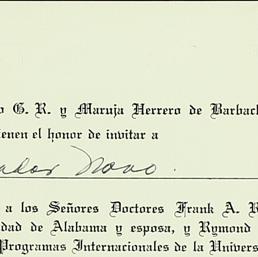 o G. R. y Maruja Herrero de Barbach
ienen el honor de invitar a
ador Novo.
a los Señores Doctores Frank A. R
dad de Alabama y esposa, y Rymond
Programas Internacionales de la Univers